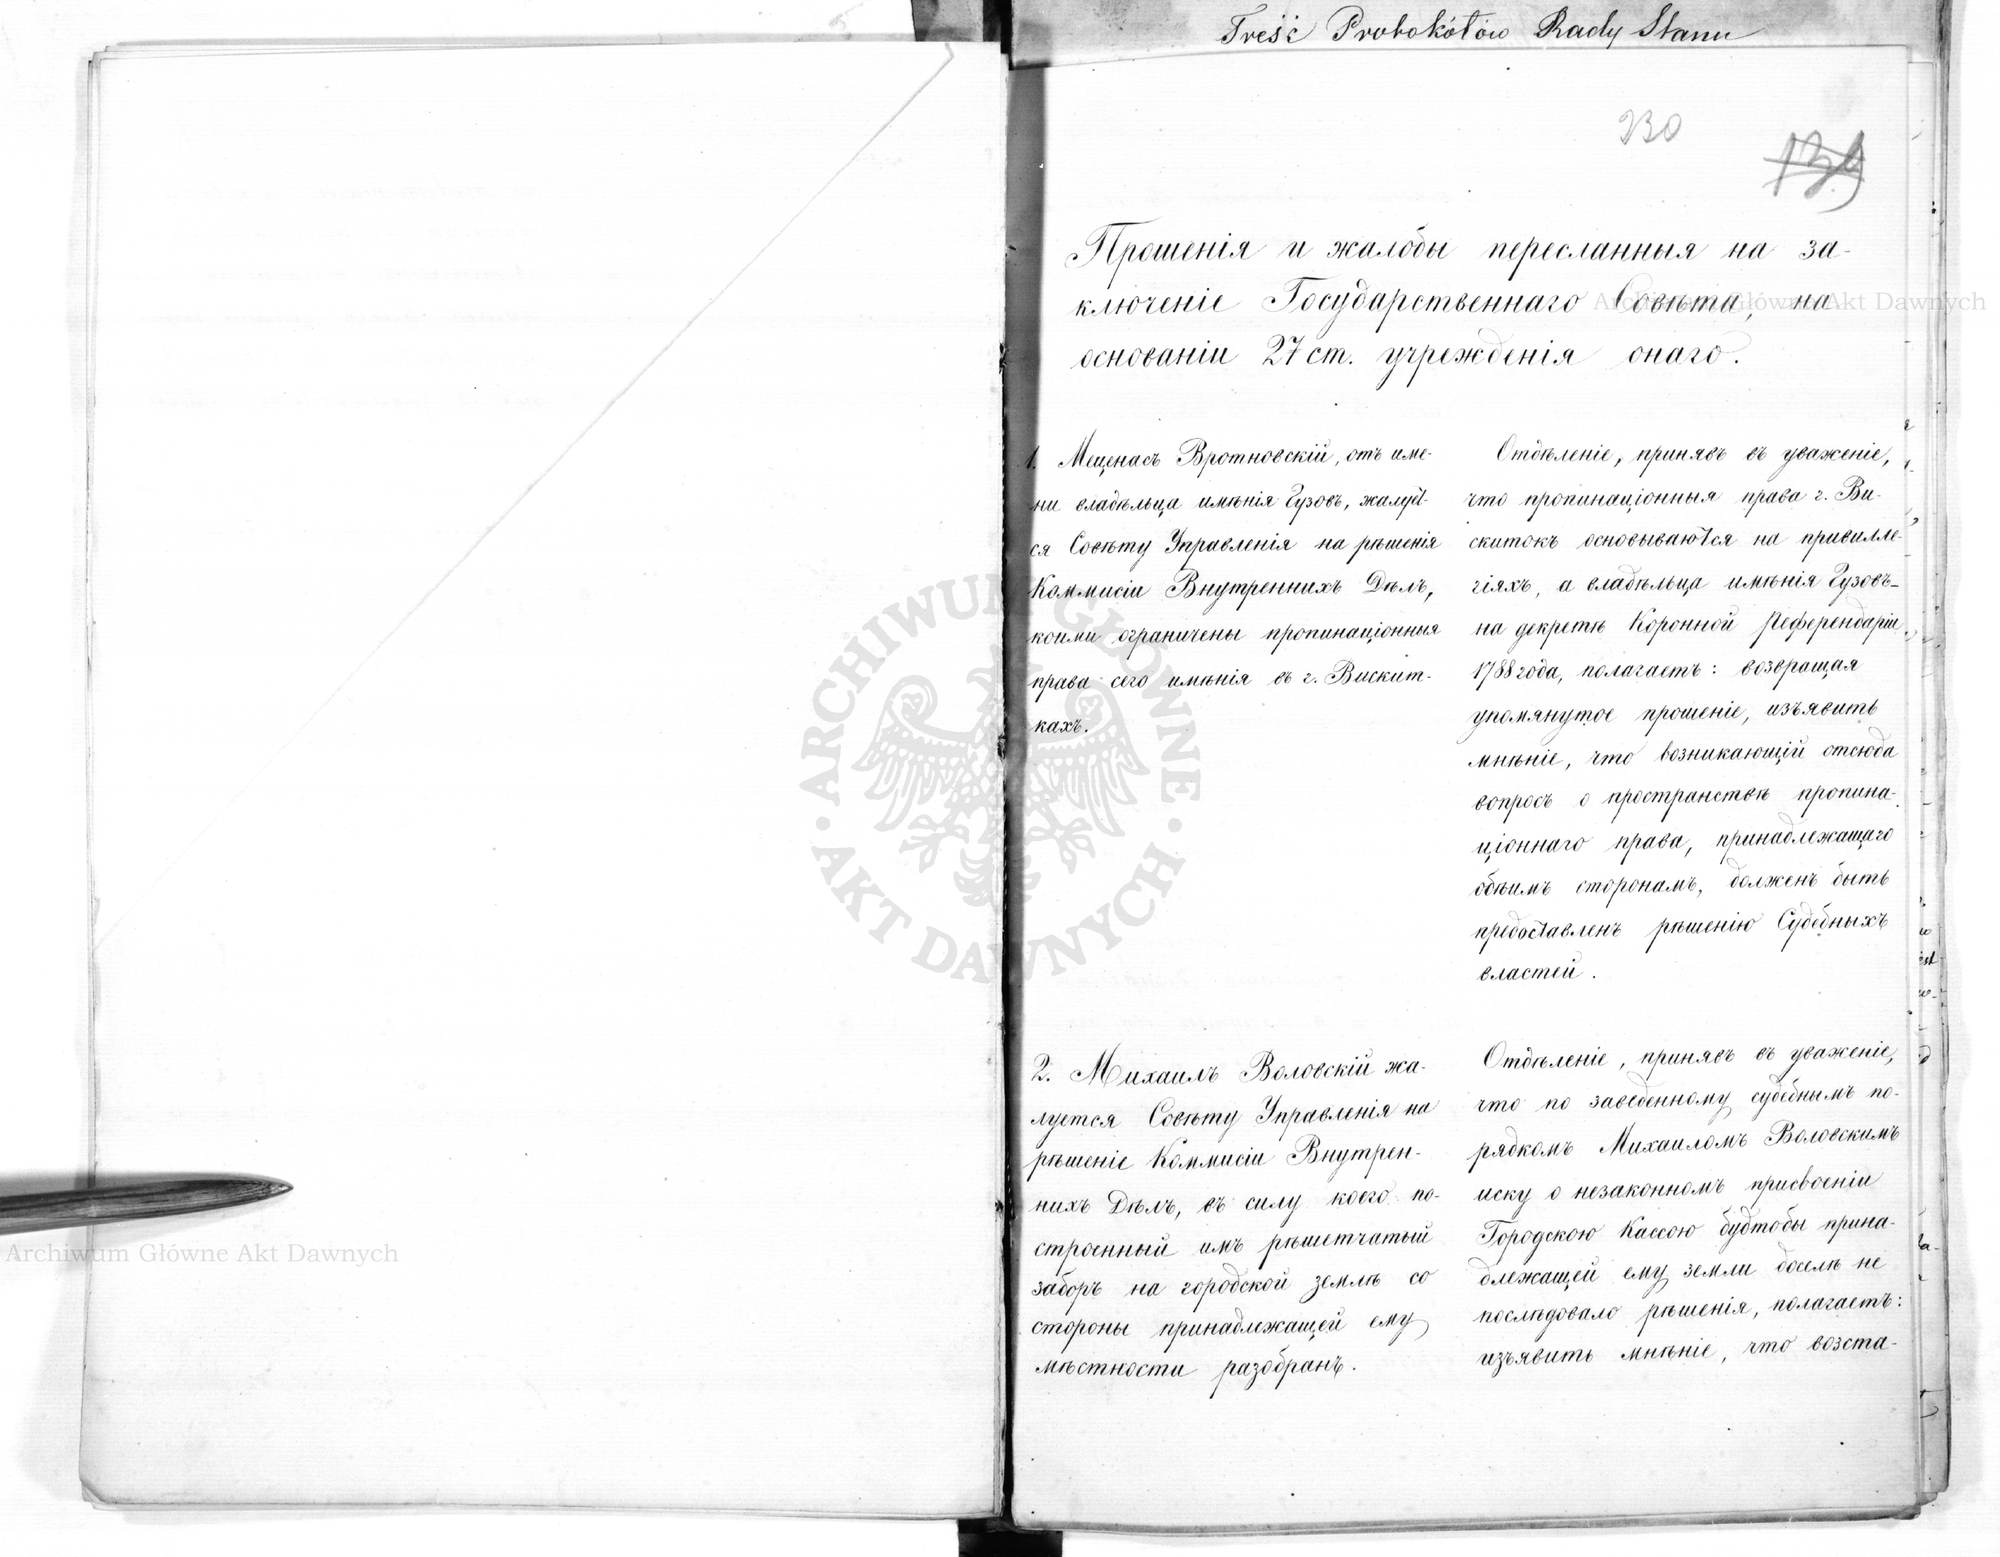 Treść Protokółów Rady Stanu
230
139
Прошенія и жалобы пересланныя на за-
ключеніе Государственнаго Совѣта, на
основаніи 27 ст. учрежденія онаго.
1. Меценасъ Вротновскій, отъ име-
ни владѣльца имѣнія Гузовъ, жалует-
ся Совѣту Управленія на рѣшенія
Коммисіи Внутреннихъ Дѣлъ,
коими ограничены пропинаціонныя
права сего имѣнія въ г. Вискит-
кахъ.
Отдѣленіе, принявъ въ уваженіе,
что пропинаціонныя права г. Ви-
скитокъ основываются на привилле-
гіяхъ, а владѣльца имѣнія Гузовъ-
на декретѣ Коронной Референдаріи
1788 года, полагаетъ: возвращая
упомянутое прошеніе, изъявить
мнѣніе, что возникающій отсюда
вопросъ о пространствѣ пропина-
ціоннаго права, принадлежащаго
обѣимъ сторонамъ, долженъ быть
предоставленъ рѣшенію Судебныхъ
властей.
2. Михаилъ Воловскій жа-
луется Совѣту Управленія на
рѣшеніе Коммисіи Внутрен-
нихъ Дѣлъ, въ силу коего по-
строенный имъ рѣшетчатый
заборъ на городской землѣ со
стороны принадлежащей ему
мѣстности разобранъ.
Отдѣленіе, принявъ въ уваженіе,
что по заведенному судебнымъ по-
рядкомъ Михаиломъ Воловскимъ
иску о незаконномъ присвоеніи
Городскою Кассою будтобы прина-
длежащей ему земли доселѣ не
послѣдовало рѣшенія, полагаетъ:
изъявить мнѣніе, что возста-
Archiwum Główne Akt Dawnych
Archiwum Główne Akt Dawnych
ARCHIWUM GŁÓWNE AKT DAWNYCH